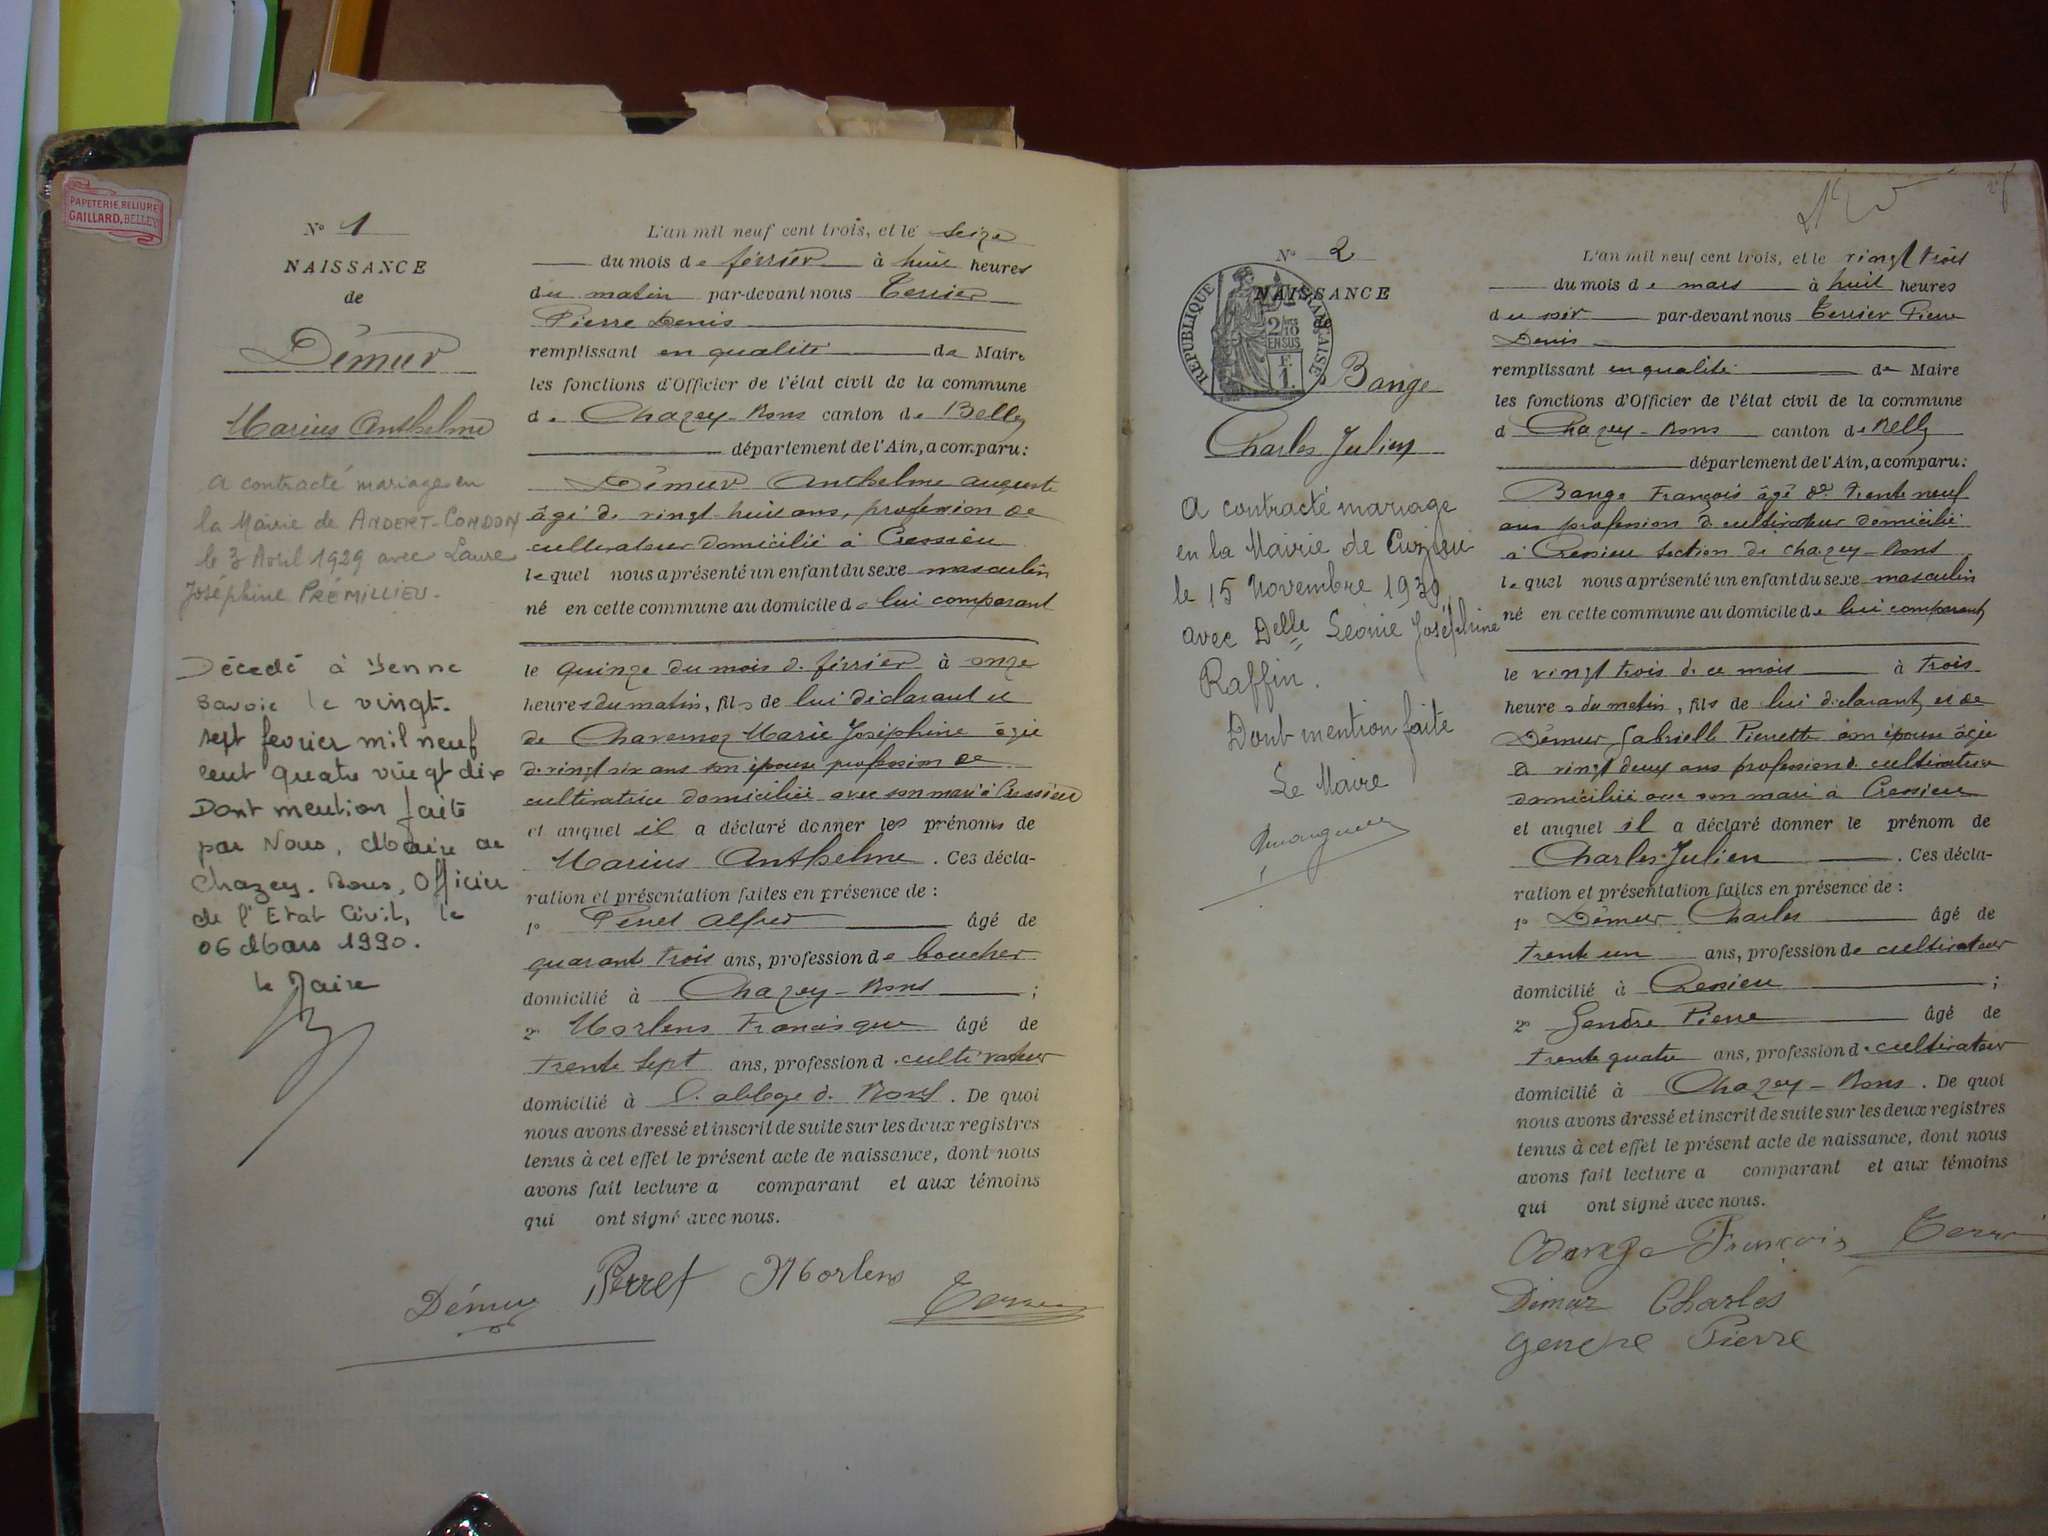 PAPETERIE RELIURE
GAILLARD, BELLEY
N° 1
NAISSANCE
de
Démur
Marius Anthelme
a contracté mariage en
la Mairie de ANDERT-CONDON
le 3 Avril 1929 avec Laure
Joséphine PRÉMILLIEU.
Décédé à Yenne
Savoie le vingt-
sept fevrier mil neuf
cent quatre vingt dix
Dont mention faite
par Nous, Maire de
Chazey-Bons, Officier
de l'Etat Civil, le
06 Mars 1990.
le Maire
L'an mil neuf cent trois, et le seize
du mois de février à huit heures
du matin par-devant nous Terrier
Pierre Denis
remplissant en qualité de Maire
les fonctions d'Officier de l'état civil de la commune
de Chazey-Bons canton de Belley
département de l'Ain, a comparu:
Démur Anthelme auguste
âgé de vingt huit ans, profession de
cultivateur domicilié à Cressieu
lequel nous a présenté un enfant du sexe masculin
né en cette commune au domicile de lui comparant
le quinze du mois de février à onze
heures du matin, fils de lui déclarant et
de Chavernoz Marie Joséphine âgée
de vingt six ans son épouse profession de
cultivatrice domiciliée avec son mari à Cressieu
et auquel il a déclaré donner les prénoms de
Marius Anthelme. Ces décla-
ration et présentation faites en présence de :
1° Perret alfred âgé de
quarante trois ans, profession de boucher
domicilié à Chazey-Bons ;
2° Morlens Francisque âgé de
trente sept ans, profession d. cultivateur
domicilié à l'abbaye d. Bons. De quoi
nous avons dressé et inscrit de suite sur les deux registres
tenus à cet effet le présent acte de naissance, dont nous
avons fait lecture a comparant et aux témoins
qui ont signé avec nous.
Démur Perret Morlens Terrier
N° 2
NAISSANCE
de
RÉPUBLIQUE FRANÇAISE
2/10 EN SUS
F.
1.
Bange
Charles Julien
a contracté mariage
en la Mairie de Cuzieu
le 15 Novembre 1930
avec Delle Léonie Joséphine
Raffin.
Dont mention faite
Le Maire
L'an mil neuf cent trois, et le vingt trois
du mois de mars à huit heures
du soir par-devant nous Terrier Pierre
Denis
remplissant en qualité de Maire
les fonctions d'Officier de l'état civil de la commune
d Chazey-Bons canton de Belley
département de l'Ain, a comparu:
Bange François âgé de trente neuf
ans profession de cultivateur domicilié
à Cressieu section de Chazey-Bons
lequel nous a présenté un enfant du sexe masculin
né en cette commune au domicile de lui comparant
le vingt trois de ce mois à trois
heures du matin, fils de lui déclarant et de
Démur Gabrielle Pierrette son épouse âgée
de vingt deux ans profession de cultivatrice
domiciliée avec son mari à Cressieu
et auquel il a déclaré donner le prénom de
Charles-Julien. Ces décla-
ration et présentation faites en présence de :
1° Démur Charles âgé de
trente un ans, profession de cultivateur
domicilié à Cressieu ;
2° Gendre Pierre âgé de
trente quatre ans, profession d. cultivateur
domicilié à Chazey-Bons. De quoi
nous avons dressé et inscrit de suite sur les deux registres
tenus à cet effet le présent acte de naissance, dont nous
avons fait lecture a comparant et aux témoins
qui ont signé avec nous.
Bange François Terrier
Démur Charles
Gendre Pierre